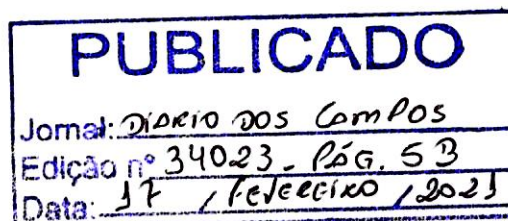 PUBLICADO
Jornal: DIÁRIO DOS CAMPOS
Edição nº 34023 - PÁG. 5B
Data: 17 / FEVEREIRO / 2021